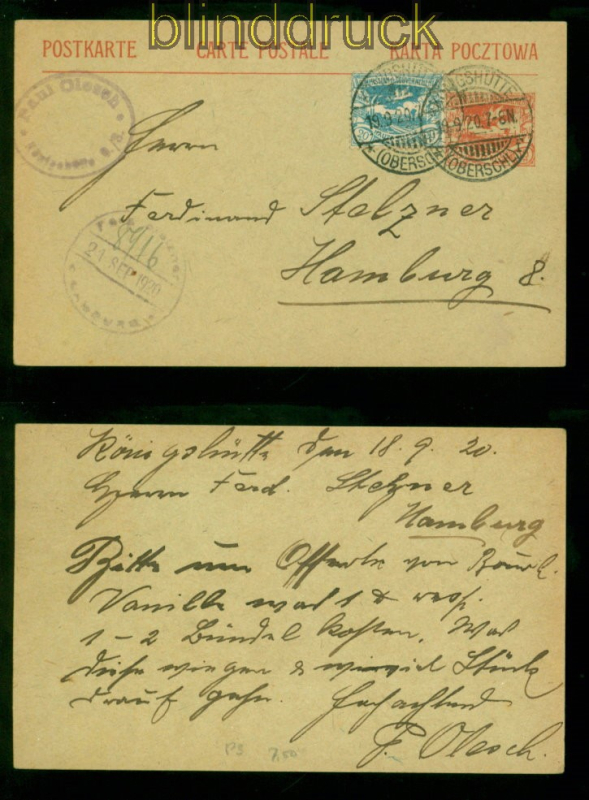 blinddruck
POSTKARTE CARTE POSTALE KARTA POCZTOWA
Paul Olesch
KÖNIGSHÜTTE
19.9.20.7-8N.
*(OBERSCHL)*
Herrn
Ferdinand Stelzner
Hamburg 8.
8916
21 SEP. 1920
HAMBURG
Königshütte den 18. 9. 20.
Herrn Ferd. Stelzner
Hamburg
Bitte um Offerte von Bourb.
Vanille was 1 & resp.
1-2 Bündel kosten. Was
diese wiegen & wieviel Stück
drauf gehn. Hochachtend
P. Olesch.
PS 7,50